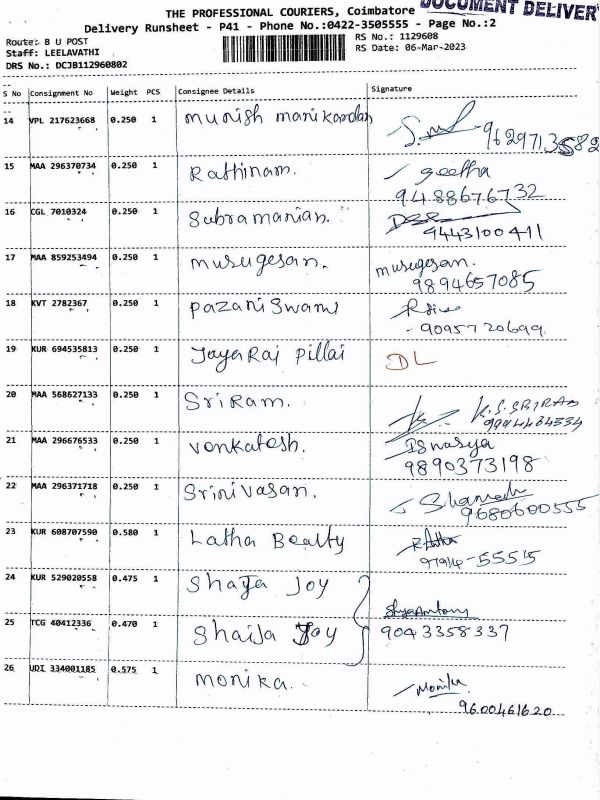 DOCUMENT DELIVER
THE PROFESSIONAL COURIERS, Coimbatore
Delivery Runsheet - P41 - Phone No.:0422-3505555 - Page No.:2
Route: B U POST RS No.: 1129608
Staff: LEELAVATHI RS Date: 06-Mar-2023
DRS No.: DCJB112960802
S No Consignment No Weight PCS Consignee Details Signature
14 VPL 217623668 0.250 1 Munish Manikandan
15 MAA 296370734 0.250 1 Rathinam. Geetha
9488676732
16 CGL 7010324 0.250 1 Subramanian.
9443100411
17 MAA 859253494 0.250 1 Murugesan. Murugesan.
9894657085
18 KVT 2782367 0.250 1 Pazani Swami
9095720699
19 KUR 694535813 0.250 1 Jaya Raj Pillai DL
20 MAA 568627133 0.250 1 SriRam. K.S. SRIRAM
21 MAA 296676533 0.250 1 Venkatesh.
9890373198
22 MAA 296371718 0.250 1 Srinivasan.
9680600555
23 KUR 608707590 0.580 1 Latha Beatty
24 KUR 529020558 0.475 1 Shaija Joy
25 TCG 40412336 0.470 1 Shaija Joy
9043358337
26 UDI 334001185 0.575 1 Monika. Monika
9600461620